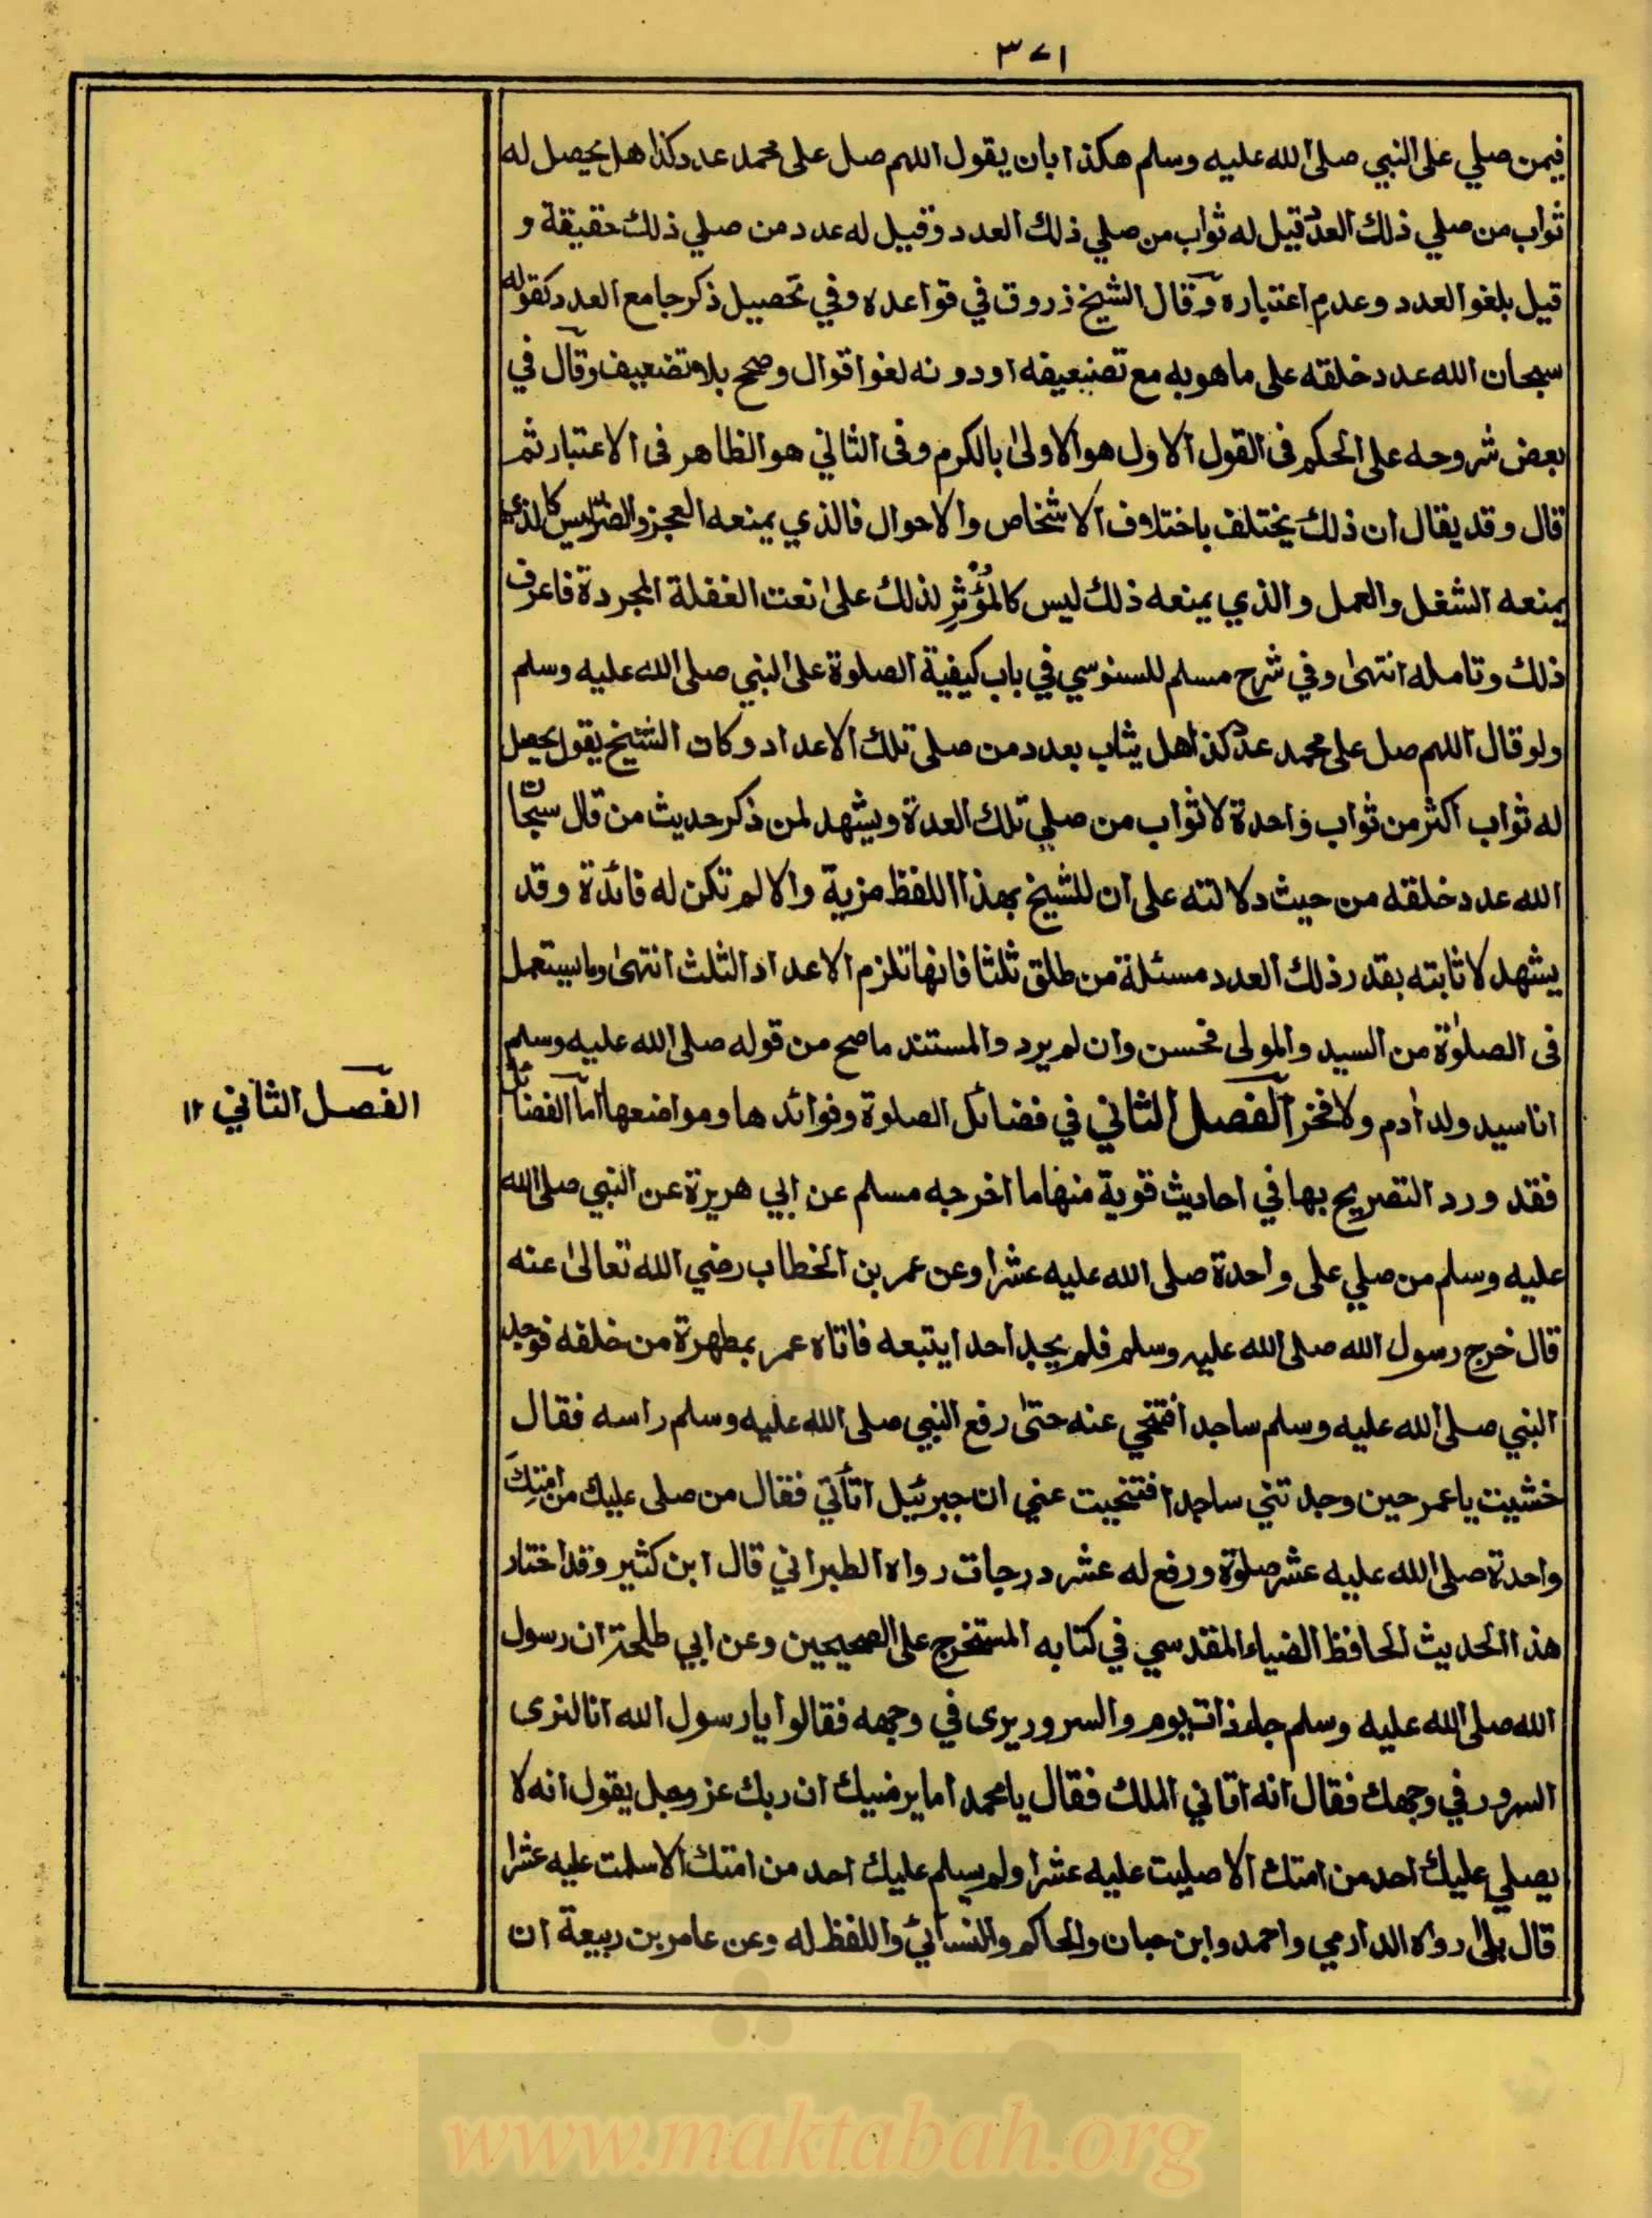 ٣٧١
فيمن صلي على النبي صلى الله عليه وسلم هكذا بان يقول اللهم صل على محمد عدد كذا هل يحصل له
ثواب من صلي ذلك العدد قيل له ثواب من صلي ذلك العدد وقيل له عدد من صلي ذلك حقيقة و
قيل بلغو العدد وعدم اعتباره وقال الشيخ زروق في قواعده وفي تحصيل ذكر جامع العدد كقوله
سبحان الله عدد خلقه على ما هو به مع تضعيفه او دونه لغوا قوال وصحح بلا تضعيف وقال في
بعض شروحه على الحكم فى القول الاول هو الاولى بالكرم وفى الثاني هو الظاهر فى الاعتبار ثم
قال وقد يقال ان ذلك يختلف باختلاف الاشخاص والاحوال فالذي يمنعه العجز والضر ليس كالذي
يمنعه الشغل والعمل والذي يمنعه ذلك ليس كالمُؤْثِرِ لذلك على نعت الغفلة المجردة فاعرف
ذلك وتامله انتهى وفي شرح مسلم للسنوسي في باب كيفية الصلوة على النبي صلى الله عليه وسلم
ولو قال اللهم صل على محمد عدد كذا هل يثاب بعدد من صلى تلك الاعداد وكان الشيخ يقول يحصل
له ثواب اكثر من ثواب واحدة لا ثواب من صلي تلك العدة ويشهد لمن ذكر حديث من قال سبحان
الله عدد خلقه من حيث دلالته على ان للشيخ بهذا اللفظ مزية والا لم تكن له فائدة وقد
يشهد لاثابته بقدر ذلك العدد مسئلة من طلق ثلثا فانها تلزم الاعداد الثلث انتهى وما يستعمل
فى الصلوٰة من السيد والمولى فحسن وان لم يرد والمستند ما صح من قوله صلى الله عليه وسلم
انا سيد ولد اٰدم ولا فخر الفصل الثاني في فضائل الصلوة وفوائدها ومواضعها اما الفضائل
الفصل الثاني ١٢
فقد ورد التصريح بها في احاديث قوية منها ما اخرجه مسلم عن ابي هريرة عن النبي صلى الله
عليه وسلم من صلي على واحدة صلى الله عليه عشرا وعن عمر بن الخطاب رضي الله تعالى عنه
قال خرج رسول الله صلى الله عليه وسلم فلم يجد احدا يتبعه فاتاه عمر بمطهرة من خلفه فوجد
النبي صلى الله عليه وسلم ساجدا فتنحي عنه حتى رفع النبي صلى الله عليه وسلم راسه فقال
خشيت ياعمر حين وجدتني ساجدا فتنحيت عني ان جبرئيل اتاني فقال من صلى عليك من امتك
واحدة صلى الله عليه عشر صلوة ورفع له عشر درجات رواه الطبراني قال ابن كثير وقد اختار
هذا الحديث الحافظ الضياء المقدسي في كتابه المستخرج على الصحيحين وعن ابي طلحة ان رسول
الله صلى الله عليه وسلم جاء ذات يوم والسرور يرى في وجهه فقالوا يا رسول الله انا لنرى
السرور في وجهك فقال انه اتاني الملك فقال يا محمد اما يرضيك ان ربك عز وجل يقول انه لا
يصلي عليك احد من امتك الا صليت عليه عشرا ولم يسلم عليك احد من امتك الا سلمت عليه عشرا
قال بلى رواه الدارمي واحمد وابن حبان والحاكم والنسائي واللفظ له وعن عامر بن ربيعة ان
www.maktabah.org